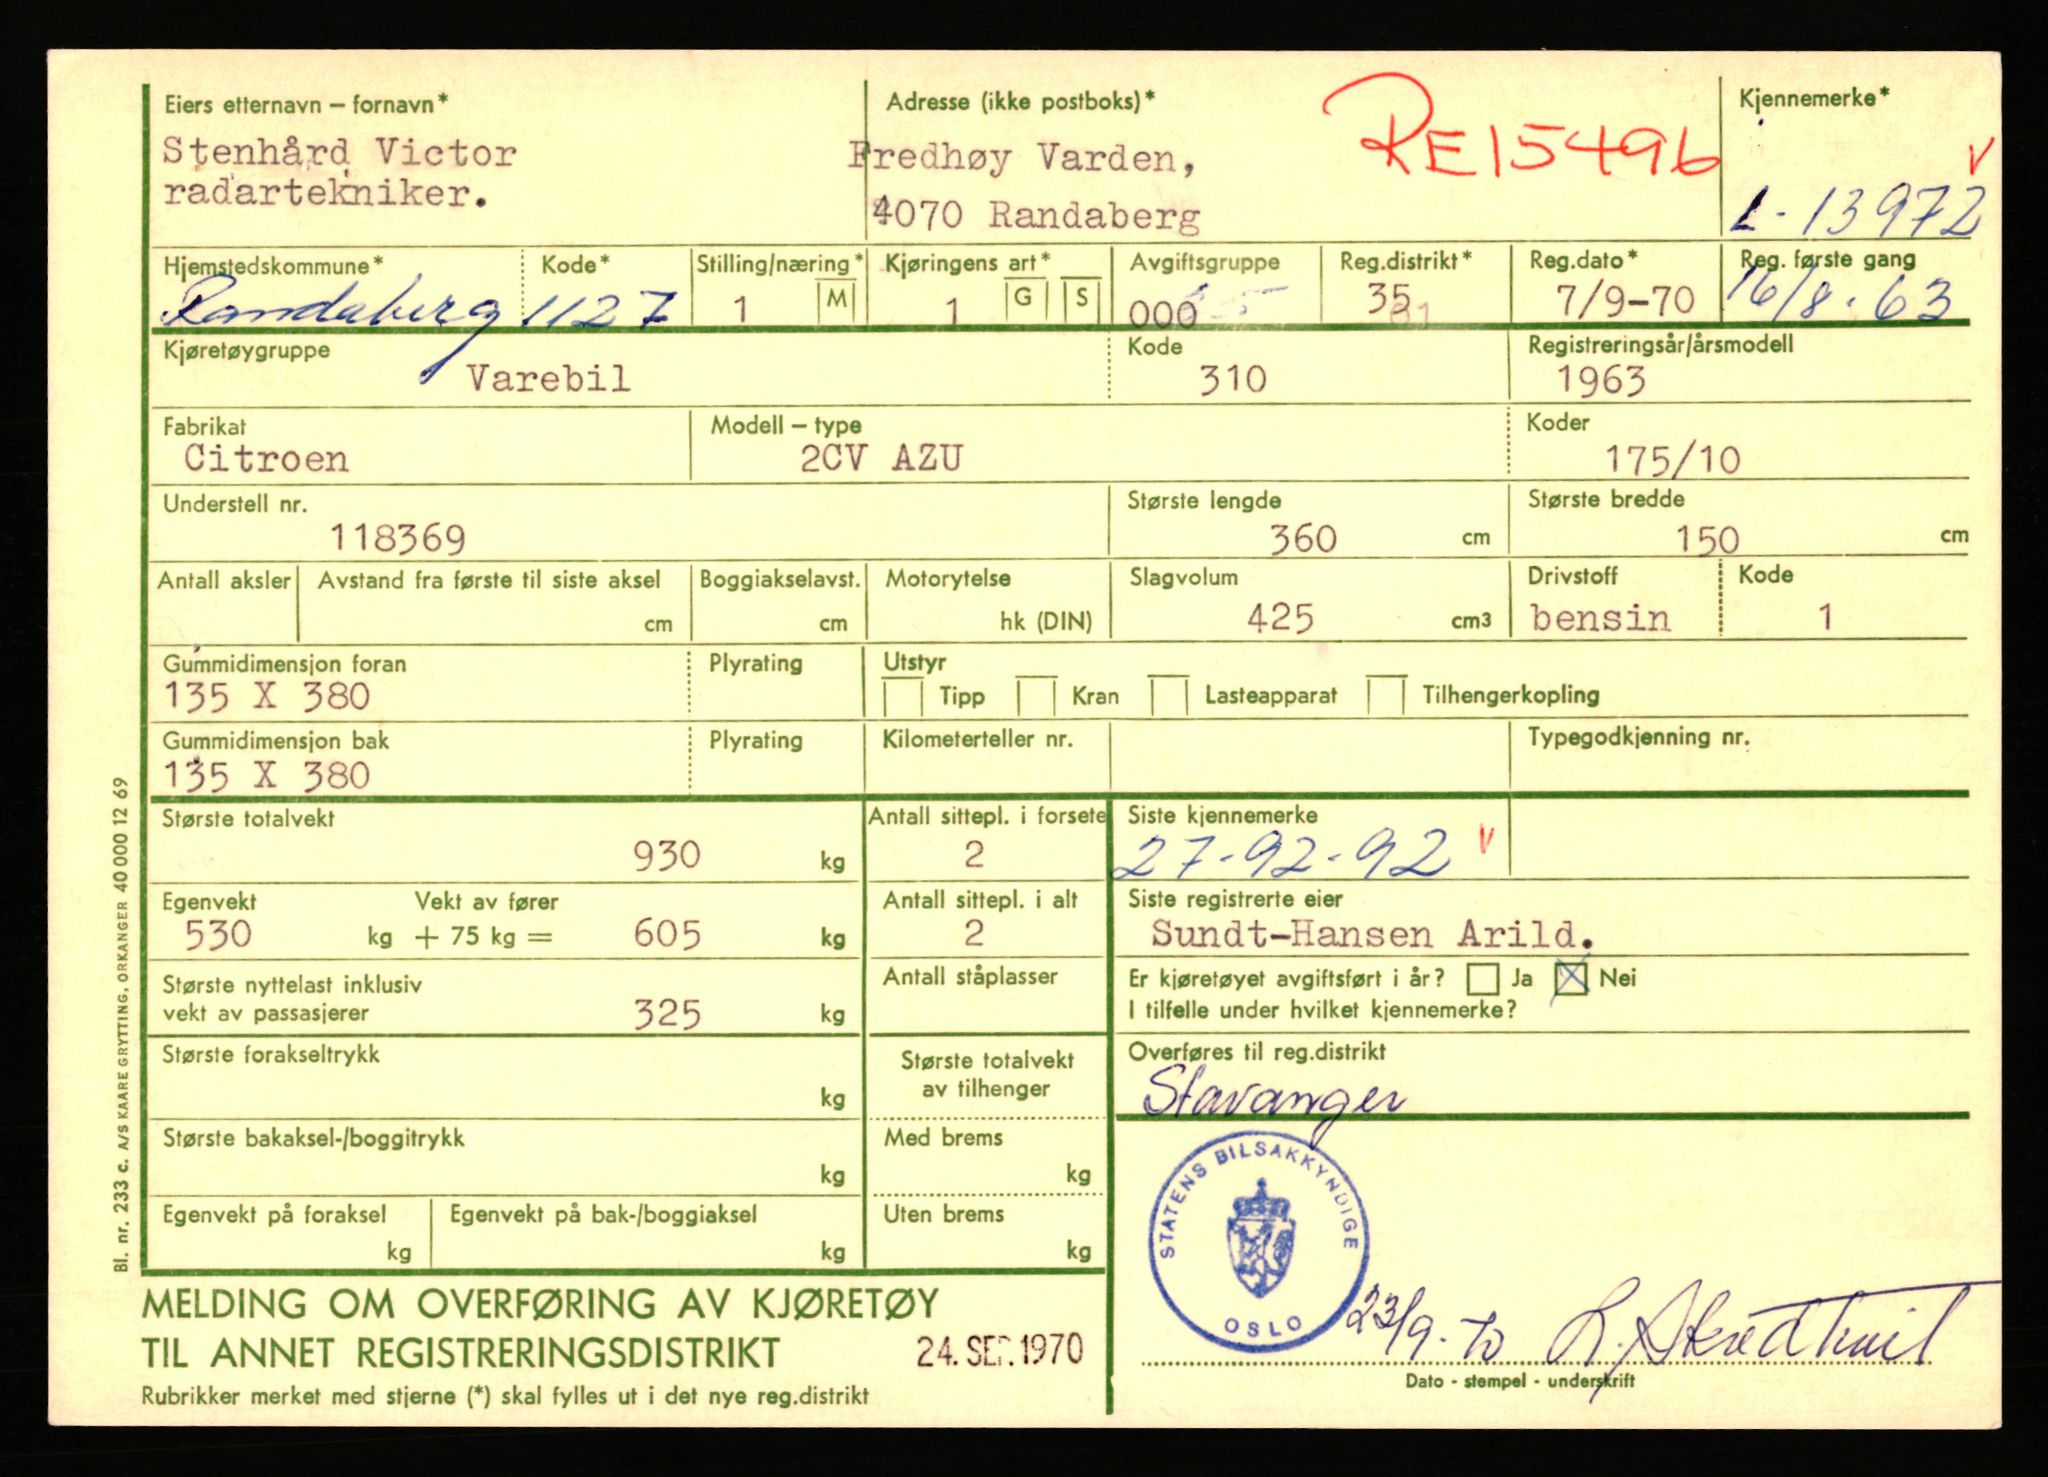 Eiers etternavn – fornavn*
Stenhård Victor
radartekniker.
Adresse (ikke postboks)*
Fredhøy Varden,
4070 Randaberg
RE15496
Kjennemerke*
V
L-13972
Hjemstedskommune*
Randaberg
Kode*
1127
Stilling/næring*
1 M
Kjøringens art*
1 G S
Avgiftsgruppe
000
Reg.distrikt*
35
Reg.dato*
7/9-70
Reg. første gang
16/8-63
Kjøretøygruppe
Varebil
Kode
310
Registreringsår/årsmodell
1963
Fabrikat
Citroen
Modell – type
2CV AZU
Koder
175/10
Understell nr.
118369
Største lengde
360 cm
Største bredde
150 cm
Antall aksler
Avstand fra første til siste aksel
cm
Boggiakselavst.
cm
Motorytelse
hk (DIN)
Slagvolum
425 cm3
Drivstoff
bensin
Kode
1
Gummidimensjon foran
135 X 380
Plyrating
Utstyr
Tipp Kran Lasteapparat Tilhengerkopling
Gummidimensjon bak
135 X 380
Plyrating
Kilometerteller nr.
Typegodkjenning nr.
Største totalvekt
930 kg
Antall sittepl. i forsete
2
Siste kjennemerke
27-92-92 V
Egenvekt
530 kg
Vekt av fører
+ 75 kg = 605 kg
Antall sittepl. i alt
2
Siste registrerte eier
Sundt-Hansen Arild.
Største nyttelast inklusiv
vekt av passasjerer
325 kg
Antall ståplasser
Er kjøretøyet avgiftsført i år? Ja Nei
I tilfelle under hvilket kjennemerke?
Største forakseltrykk
kg
Største totalvekt
av tilhenger
Overføres til reg.distrikt
Stavanger
Største bakaksel-/boggitrykk
kg
Med brems
kg
Egenvekt på foraksel
kg
Egenvekt på bak-/boggiaksel
kg
Uten brems
kg
STATENS BILSAKKYNDIGE
OSLO
23/9-70
MELDING OM OVERFØRING AV KJØRETØY
TIL ANNET REGISTRERINGSDISTRIKT
24. SEP. 1970
Rubrikker merket med stjerne (*) skal fylles ut i det nye reg.distrikt
Dato - stempel - underskrift
Bl. nr. 233 c. A/S KAARE GRYTTING, ORKANGER 40 000 12 69